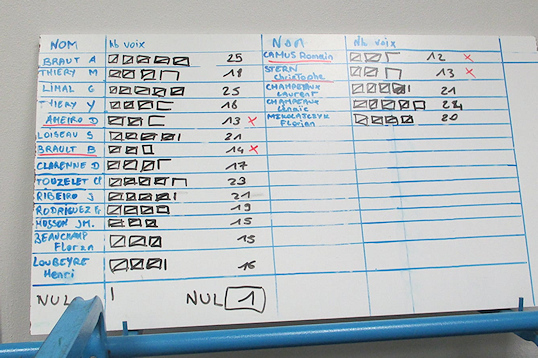 NOM Nb voix NOM Nb voix
BRAUT A 25 CAMUS Romain 12 x
THIERY M 18 STERN Christophe 13 x
LIMAL G 25 CHAMPEAUX Laurent 21
THIERY Y 16 CHAMPEAUX
AMEIRO D 13 x Florian 20
LOISEAU S 21
BRAULT B 14 x
CLARENNE D 17
TOUZELET 23
RIBEIRO J 21
RODRIGUEZ 19
HUSSON JM. 15
BEAUCHAMP Florian 15
LOUBEYRE Henri 16
NUL NUL 1